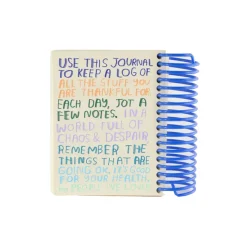 USE THIS JOURNAL
TO KEEP A LOG OF
ALL THE STUFF YOU
ARE THANKFUL FOR
EACH DAY, JOT A
FEW NOTES. IN A
WORLD FULL OF
CHAOS & DESPAIR
REMEMBER THE
THINGS THAT ARE
GOING OK. IT'S GOOD
FOR YOUR HEART.